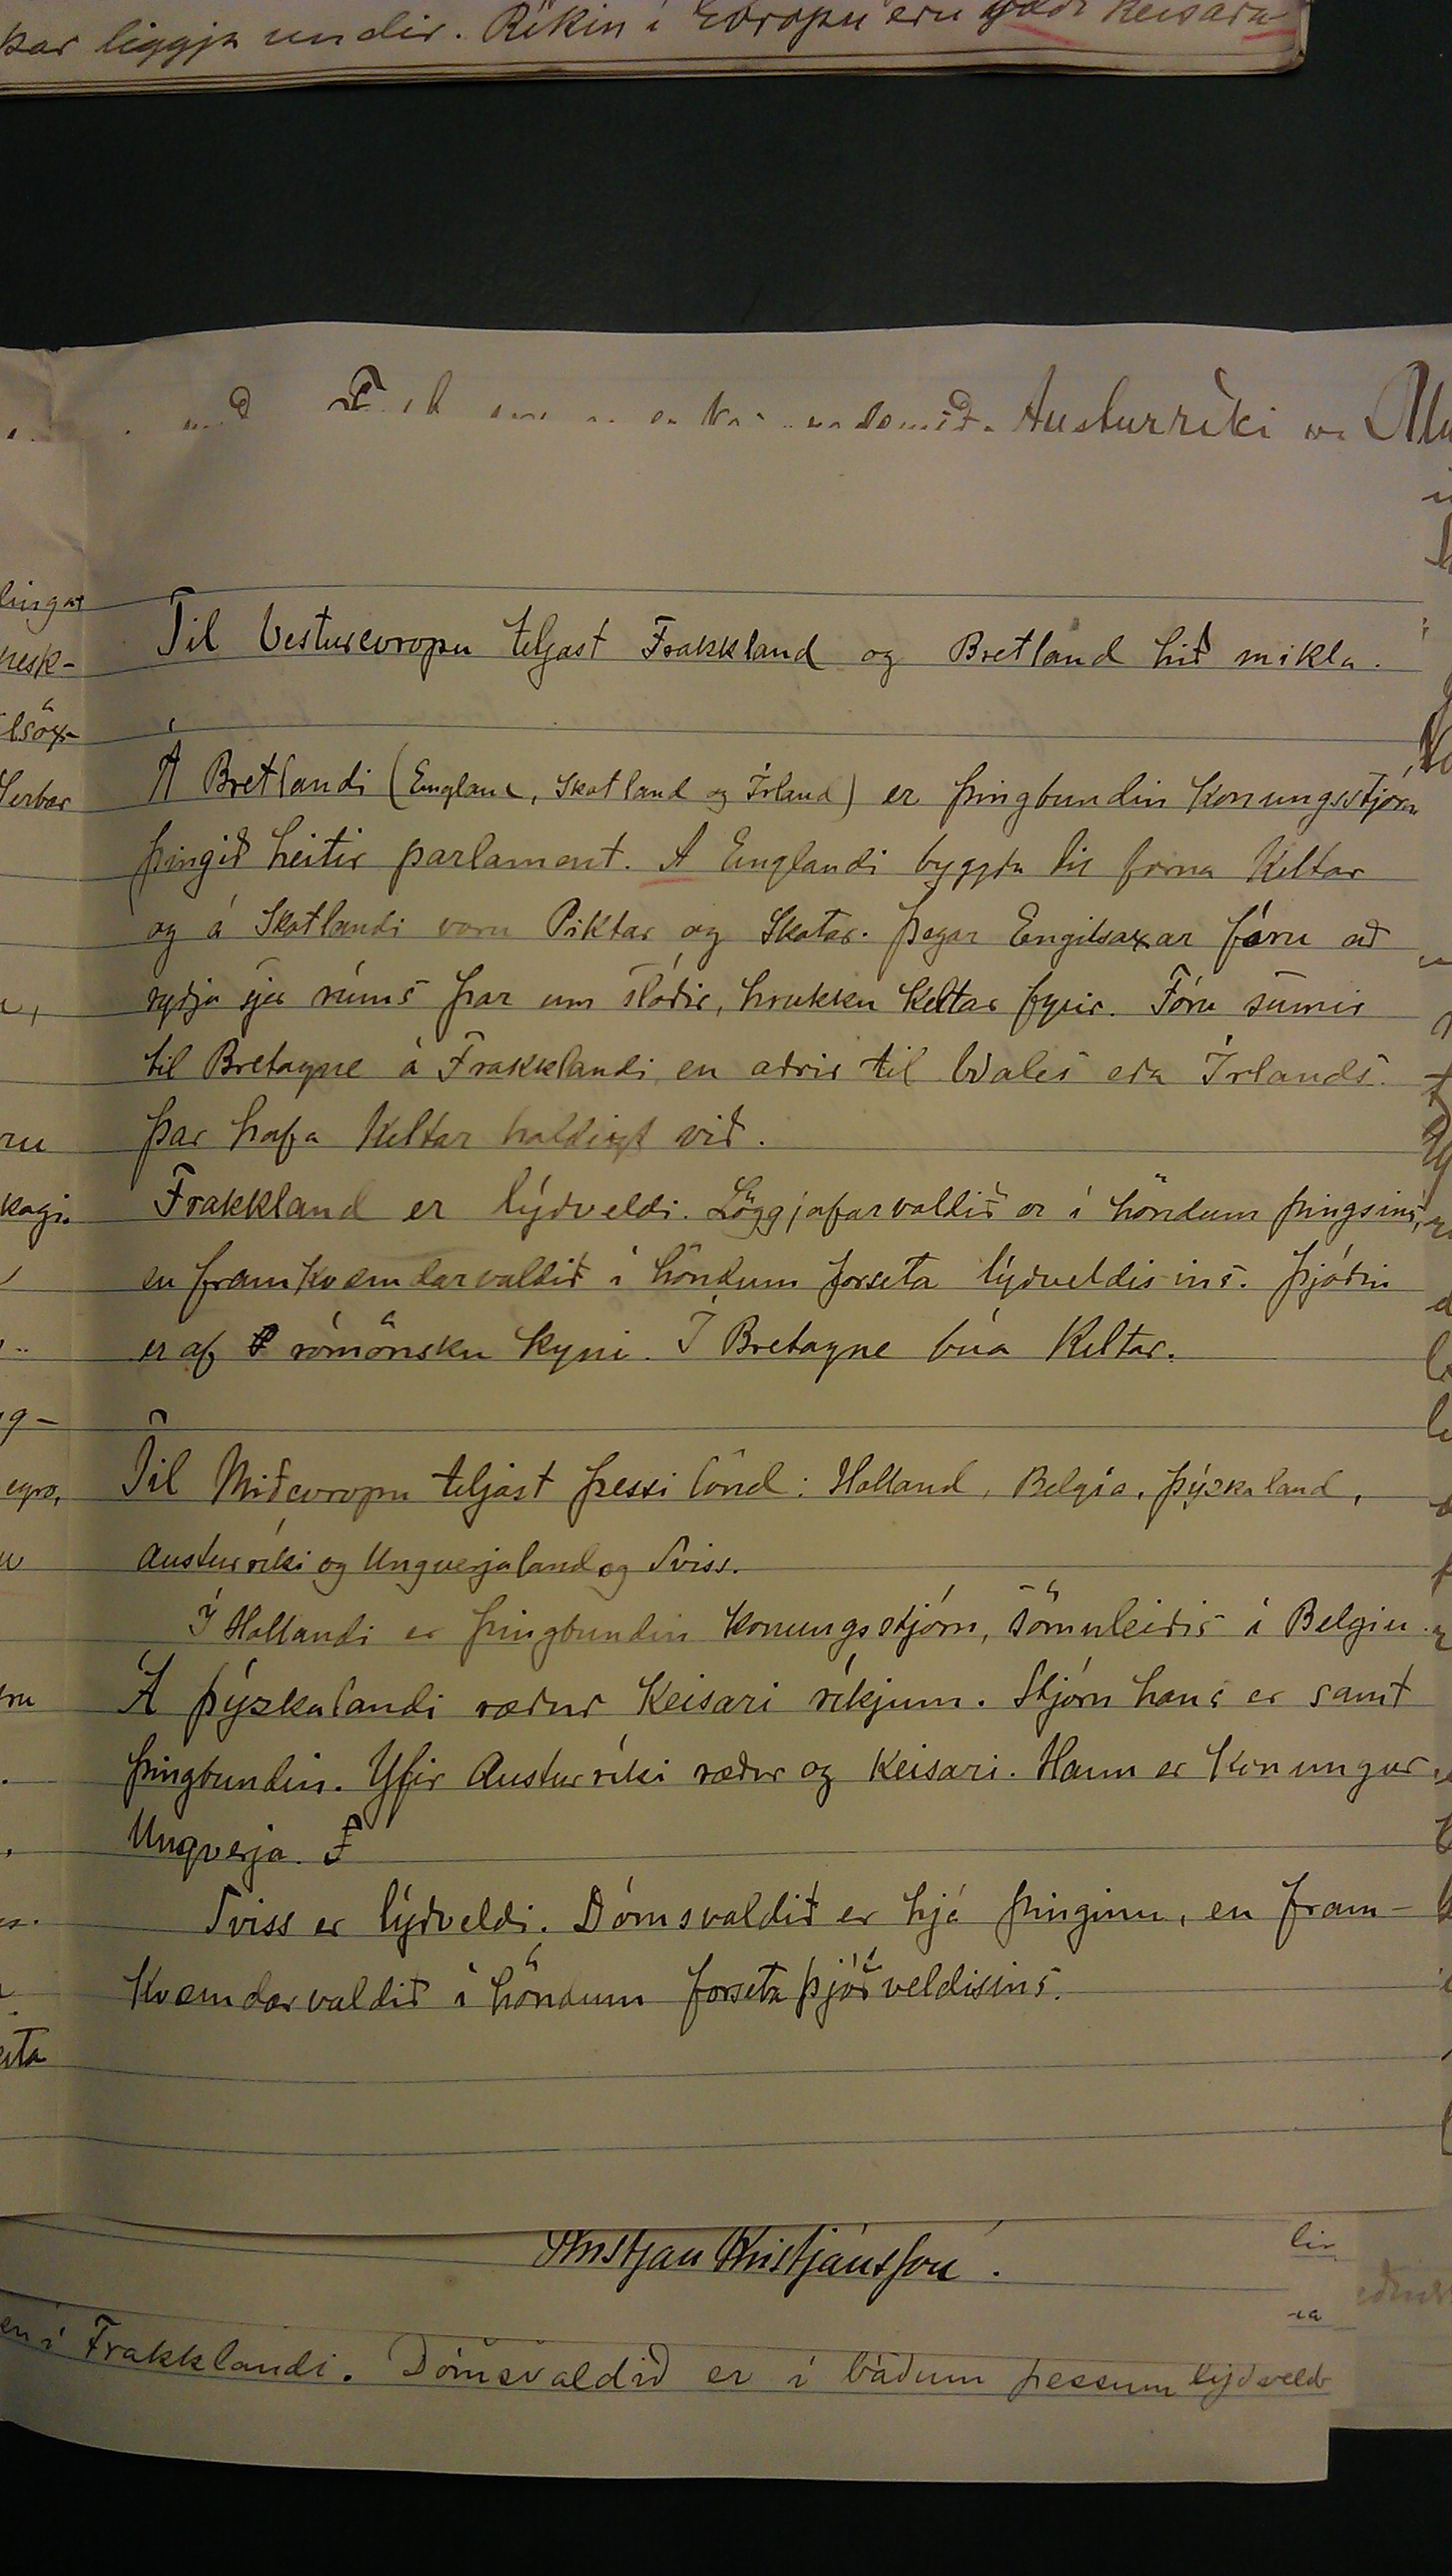 þar liggja undir. Ríkin í Evropu eru keisara
Austurríki
lingar
nesk-
ilsöx-
Serbar
Til Vesturevropu teljast Frakkland og Bretland hið mikla.
Á Bretlandi (England, Skotland og Írland) er þingbundin konungsstjórn
þingið heitir parlament. Á Englandi byggðu til forna Keltar
og á Skotlandi voru Piktar og Skotar. Þegar Engilsaxar fóru að
ryðja sjer rúms þar um slóðir, hrukku Keltar fyrir. Fóru sumir
til Bretagne á Frakklandi en aðrir til Wales eða Írlands.
Þar hafa Keltar haldizt við.
Frakkland er lýðveldi. Löggjafarvaldið er í höndum þingsins,
en framkvæmdarvaldið í höndum forseta lýðveldisins. Þjóðin
er af rómönsku kyni. Í Bretagne búa Keltar.
Til Miðevropu teljast þessi lönd: Holland, Belgía, Þýzkaland,
Austurríki og Ungverjaland og Sviss.
Í Hollandi er þingbundin konungsstjórn, sömuleiðis í Belgíu.
Á Þýzkalandi ræður keisari ríkjum. Stjórn hans er samt
þingbundin. Yfir Austurríki ræður og keisari. Hann er konungur
Ungverja. F
Sviss er lýðveldi. Dómsvaldið er hjá þinginu, en fram-
kvæmdarvaldið í höndum forseta þjóðveldisins.
Kristján Kristjánsson.
en í Frakklandi. Dómsvaldið er í báðum þessum lýðveld